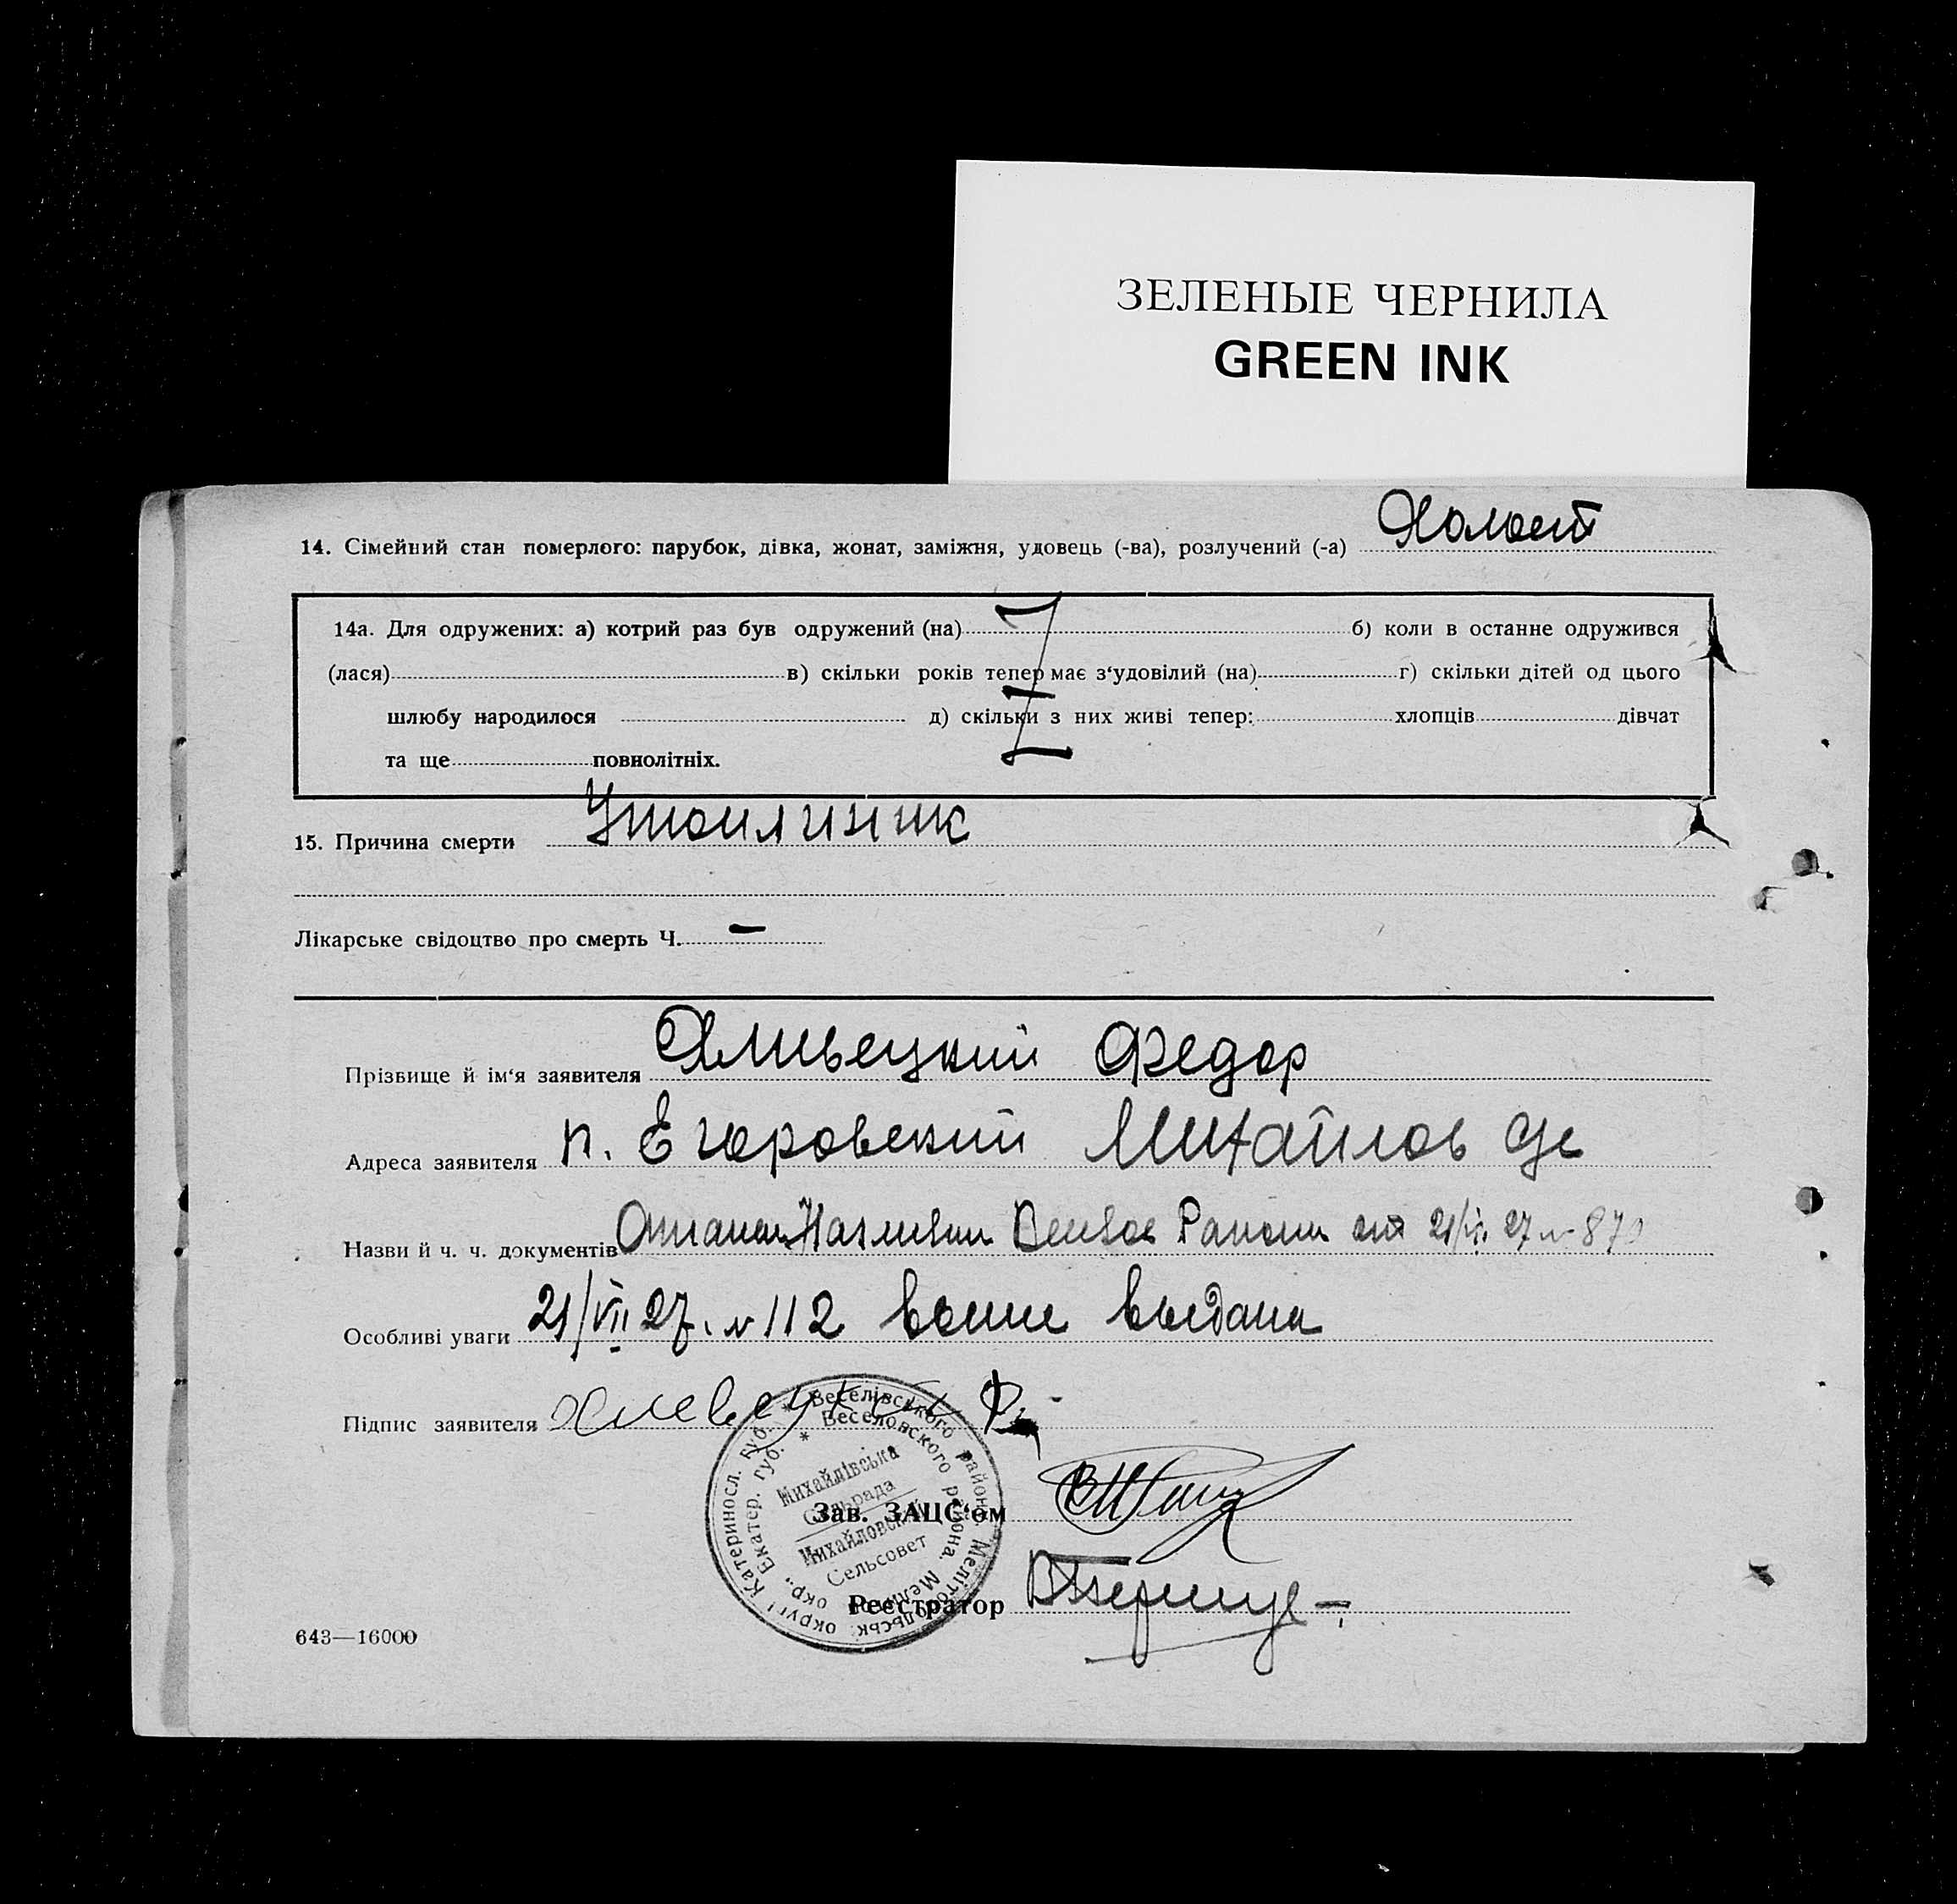 ЗЕЛЕНЫЕ ЧЕРНИЛА
GREEN INK
14. Сімейний стан померлого: парубок, дівка, жонат, заміжня, удовець (-ва), розлучений (-а) Холост
14а. Для одружених: а) котрий раз був одружений (на) б) коли в останне одружився
(лася) в) скільки років тепер має з‘удовілий (на) г) скільки дітей од цього
шлюбу народилося д) скільки з них живі тепер: хлопців дівчат
та ще повнолітніх.
15. Причина смерти Утопленик
Лікарське свідоцтво про смерть Ч. —
Прізвище й ім‘я заявителя Хливецкий Федор
Адреса заявителя п. Егоровский Михайлов
Назви й ч. ч. документів Района от 21/VII 27 № 870
Особливі уваги 21/VII 27. № 112 выдана
Підпис заявителя Хлевецкий Ф.
Веселівського району Мелітопольськ. округи Катеринос. губ.
Веселовского района. Мелитоп. окр., Екатер. губ.
Михайлівська
Сільрада
Михайловский
Сельсовет
Зав. ЗАЦС‘ом
Реєстратор
643—16000